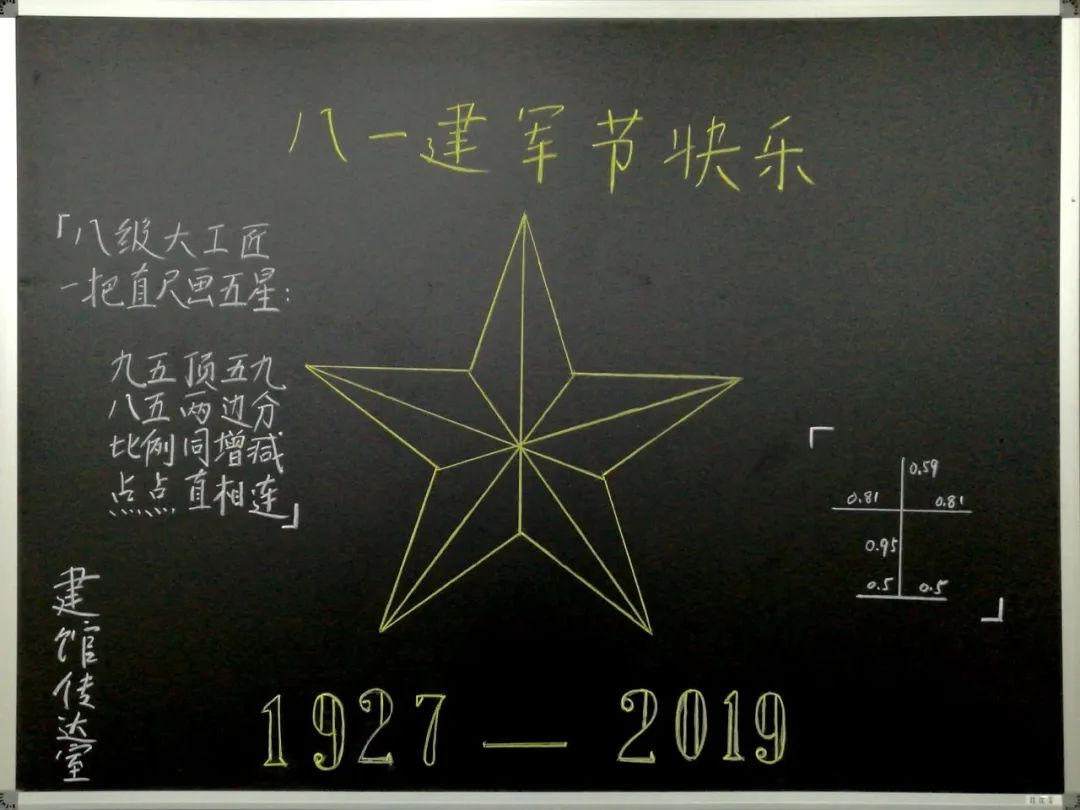 八一建军节快乐
「八级大工匠
一把直尺画五星：
九五顶五九
八五两边分
比例同增减
点点直相连」
「
0.59
0.81 0.81
0.95
0.5 0.5
」
建馆传达室
1927—2019